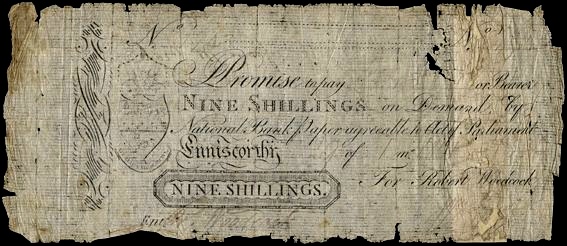 No No
Promise to pay or Bearer
NINE SHILLINGS on Demand by
National Bank Paper agreeable to Act of Parliament
Enniscorthy of
For Robert Woodcock
NINE SHILLINGS.
Ent